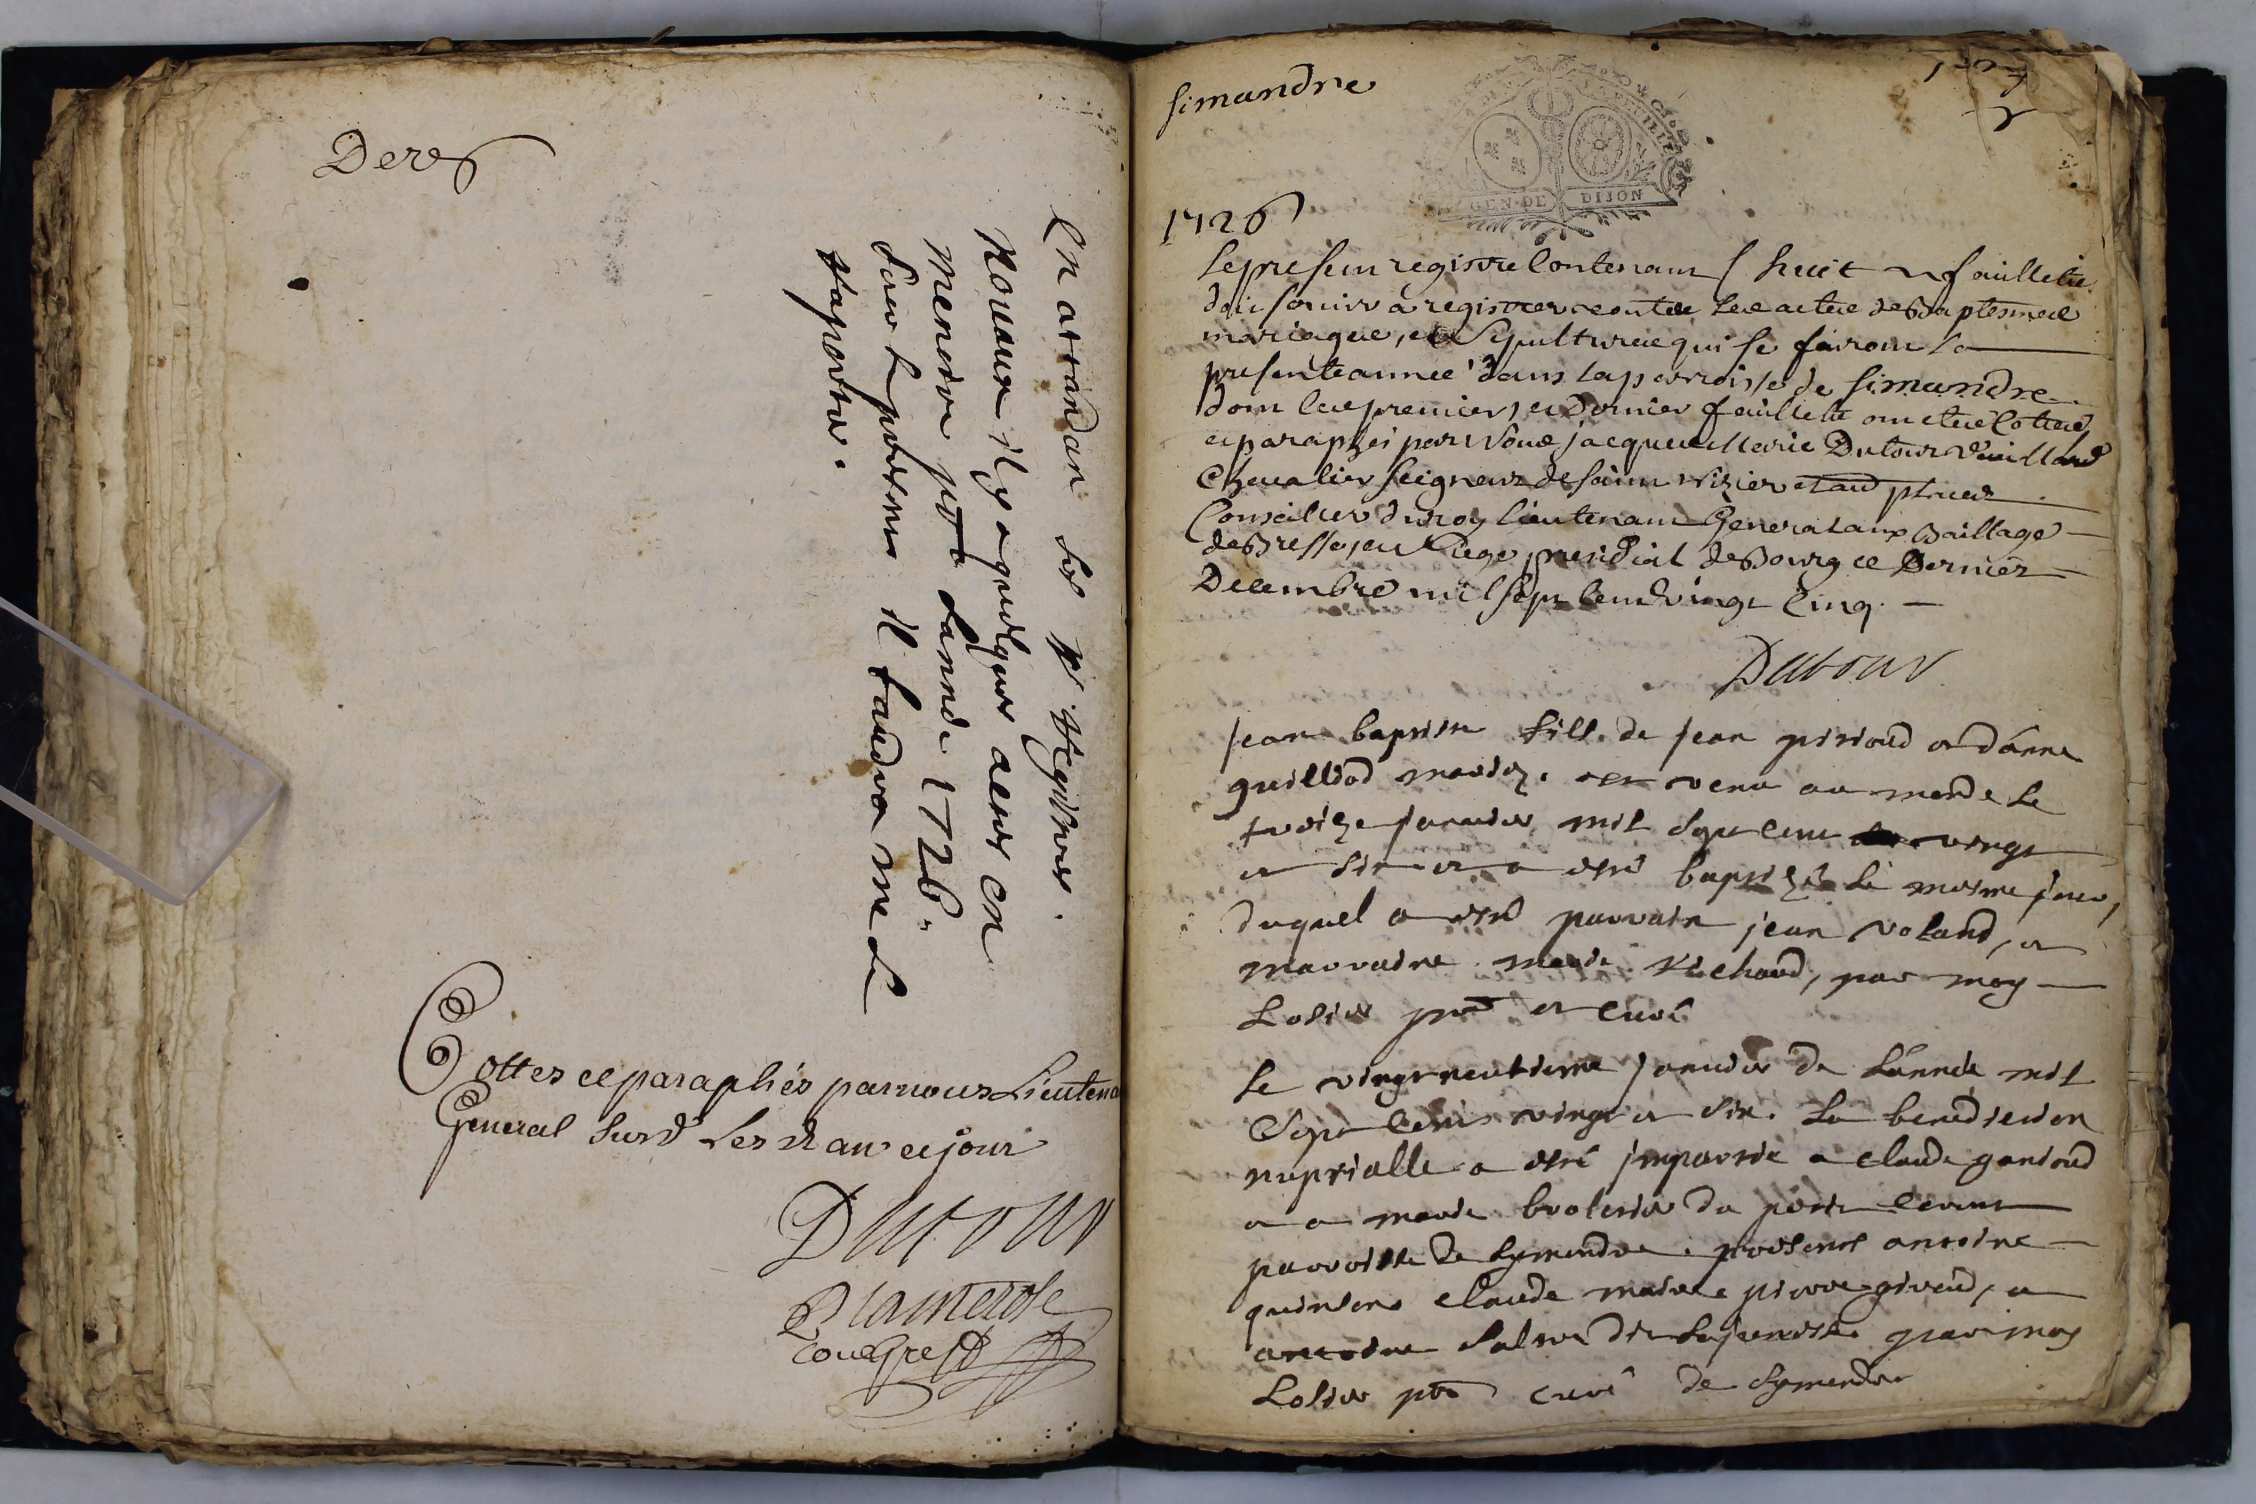 Der
En attandan les Registres
Nouaux il y a quelques actes en
memoire pour Lannée 1726.
sur le presens il faudra me le
raporter.
Cottes et paraphés par nous Lieutena
General susd Les d an et jour
Dutour
simandre
GEN·DE DIJON
1726
Le presem registre Contenant huit feuillets
doit servir a registrer toutes les actes de Baptesmes
mariages, et Sepultures qui se fairont la
presente annee dans la parroisse de simandre
dont les premier, et dernier feuillets ont etés Cottés
et paraphés par Nous jacques Marie Dutour Vuillard
Chevalier seigneur de saint
Conseiller du roy lieutenant General aux Baillage
de Bresse, et siege presidial de Bourg ce Dernier
Decembre mil sept Cend vingt Cinq.
Dutour
jean baptiste fils de jean pirioud et d'anne
guilliod mariez. est venu au monde le
treize januier mil sept cent vingt
et six et a esté baptizé le mesme jour,
duquel a esté parrain jean voland, et
marraine marie Richard, par moy
Losier ptre et curé
Le vingtneufiesme januier de L'année mil
sept cents vingt et six. La benediction
nuptialle a esté impartie a claude
et a marie du petit
parroisse de symandre. presents antoine
claude pierre giroud, et
antoine par moy
Losier ptre curé de symandre